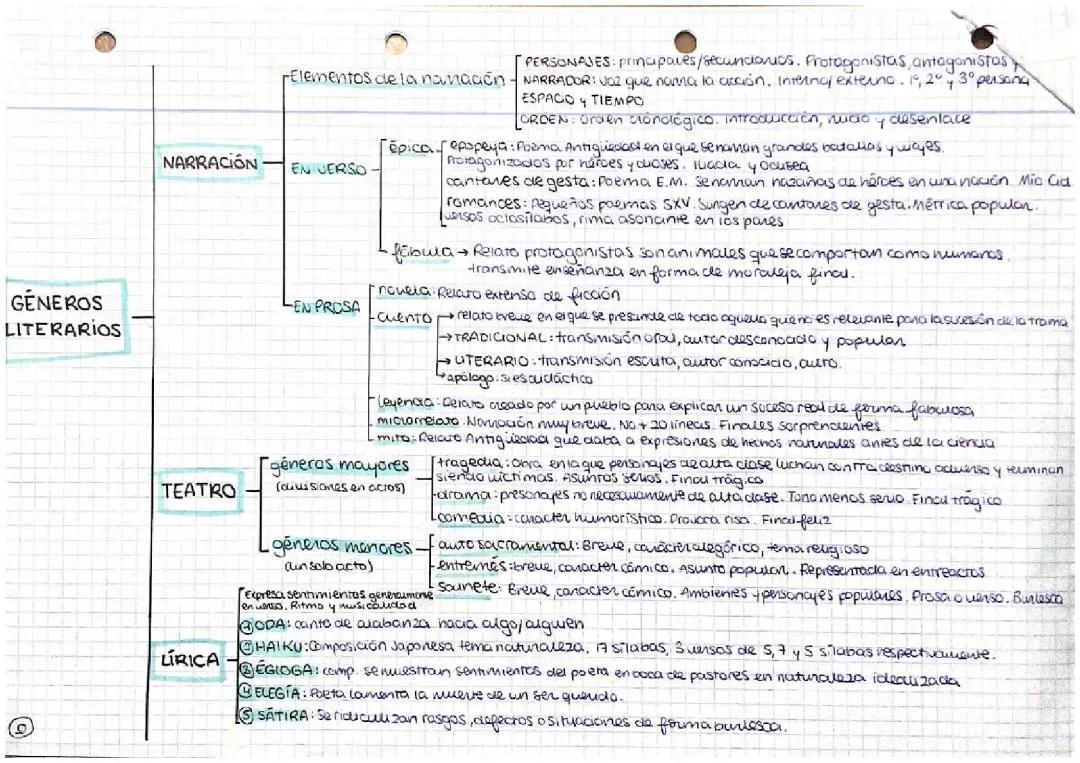 GÉNEROS LITERARIOS
NARRACIÓN
Elementos de la narración
PERSONAJES: principales/secundarios. Protagonistas, antagonistas y
NARRADOR: voz que narra la acción. Interno/externo. 1º, 2º y 3º persona
ESPACIO y TIEMPO
ORDEN: orden cronológico. introducción, nudo y desenlace
EN VERSO
épica
epopeya: Poema Antigüedad en el que se narran grandes batallas y viajes.
Protagonizados por héroes y dioses. Iliada y Odisea
cantares de gesta: Poema E.M. Se narran hazañas de héroes en una nación. Mio Cid
romances: Pequeños poemas SXV. Surgen de cantares de gesta. Métrica popular.
versos octosílabos, rima asonante en los pares
fábula → Relato protagonistas son animales que se comportan como humanos.
transmite enseñanza en forma de moraleja final.
EN PROSA
novela: Relato extenso de ficción
cuento
→ relato breve en el que se prescinde de todo aquello que no es relevante para la sucesión de la trama
→ TRADICIONAL: transmisión oral, autor desconocido y popular
→ LITERARIO: transmisión escrita, autor conocido, culto.
→ apólogo: si es didáctico
leyenda: Relato creado por un pueblo para explicar un suceso real de forma fabulosa
microrrelato: Narración muy breve. No + 20 líneas. Finales sorprendentes
mito: Relato Antigüedad que daba a expresiones de hechos naturales antes de la ciencia
TEATRO
géneros mayores
(divisiones en actos)
tragedia: Obra en la que personajes de alta clase luchan contra destino adverso y terminan
siendo víctimas. Asuntos serios. Final trágico
drama: presonajes no necesariamente de alta clase. Tono menos serio. Final trágico
comedia: caracter humorístico. Provoca risa. Final feliz
géneros menores
(un solo acto)
auto sacramental: Breve, carácter alegórico, tema religioso
entremés: breve, caracter cómico. Asunto popular. Representada en entreactos
sainete: Breve, caracter cómico. Ambientes y personajes populares. Prosa o verso. Burlesco
LÍRICA
Expresa sentimientos generalmente
en verso. Ritmo y musicalidad
① ODA: canto de alabanza hacia algo/alguien
HAIKU: Composición Japonesa tema naturaleza, 17 sílabas, 3 versos de 5, 7 y 5 sílabas respectivamente.
ÉGLOGA: comp. se muestran sentimientos del poeta en boca de pastores en naturaleza idealizada
④ ELEGÍA: Poeta lamenta la muerte de un ser querido.
⑤ SÁTIRA: Se ridiculizan rasgos, defectos o situaciones de forma burlesca.